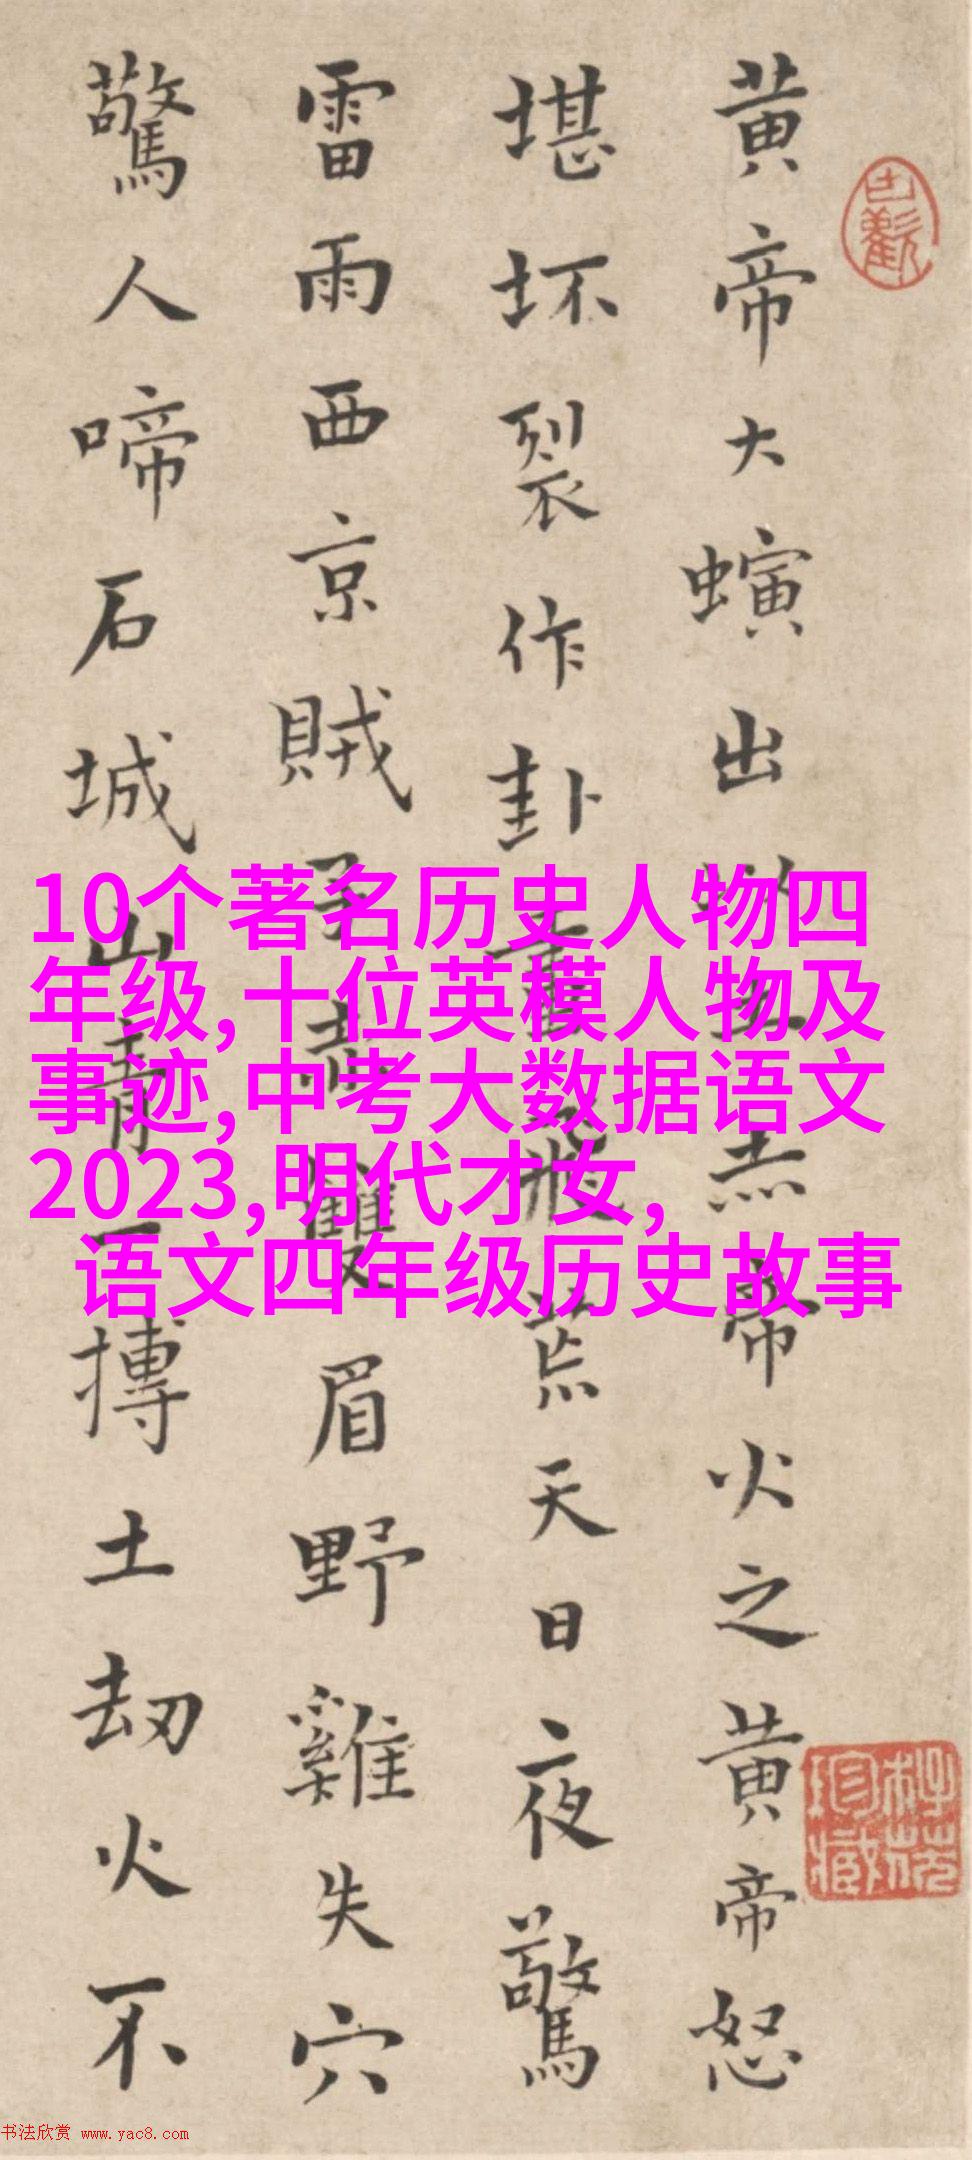 黄帝大螾出赤帝火之黄帝怒
堪坏裂作卦飛荒天日夜驚
雷雨西京賊子赤雙眉野雞失穴
驚人啼石城山青一摶土劫火不
10个著名历史人物四
年级,十位英模人物及
事迹,中考大数据语文
2023,明代才女,
语文四年级历史故事
书法欣赏 www.yac8.com